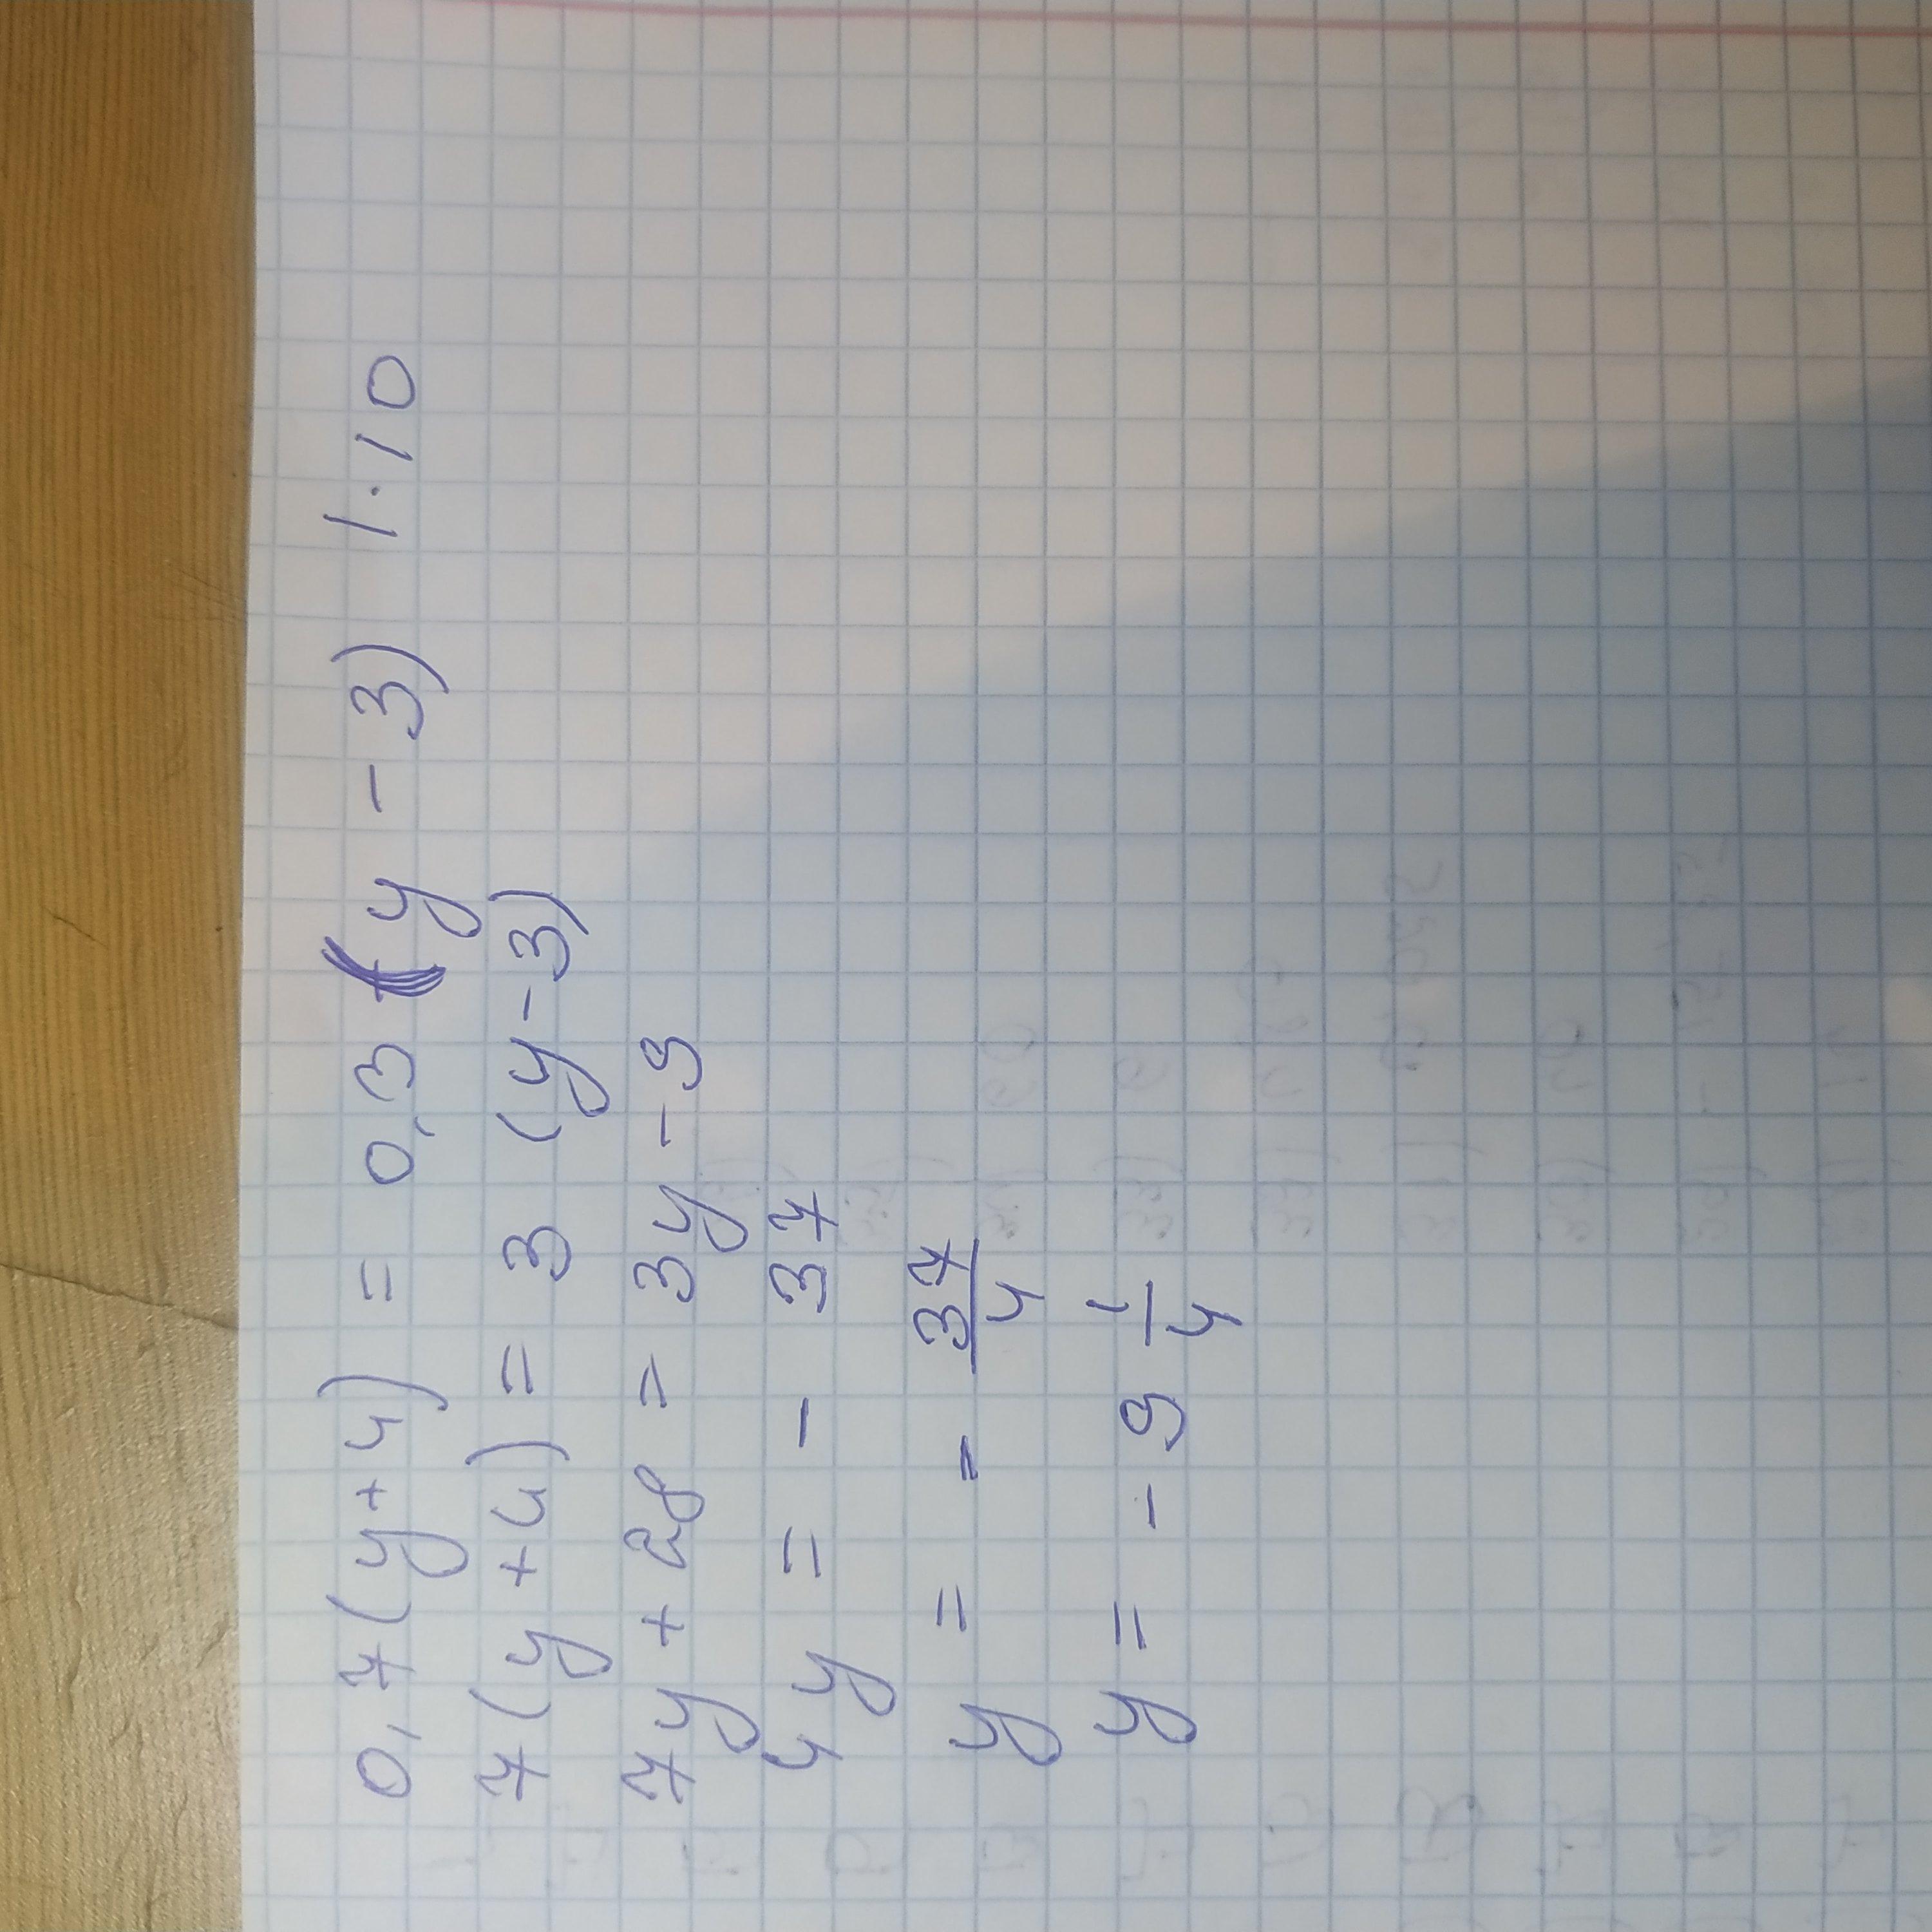 0,7(y+4) = 0,3(y-3) |·10
7(y+4) = 3(y-3)
7y + 28 = 3y - 9
4y = - 37
y = - 37/4
y = - 9 1/4